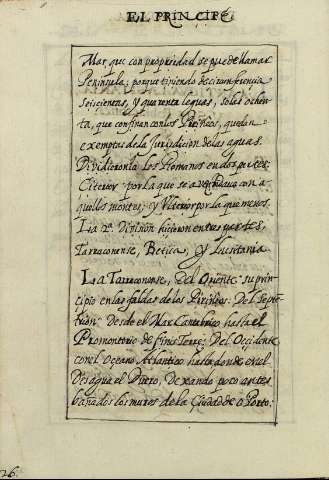 EL PRINCIPE
Mar, que con propriedad se puede llamar
Peninsula; porque teniendo de circunferencia
seiscientas, y quarenta leguas, solas ochen
ta, que confinan con los Pirineos, quedan
exemptas de la Jurisdicion de las aguas.
Dividieronla los Romanos en dos partes
Citerior por la que se avezindava con a
quellos montes; y Ulterior por la que menos.
La 2ª. Division hicieron en tres partes,
Tarraconense, Betica, y Lusitania.
La Tarraconense, del Oriente su prin
cipio en las faldas de los Pirineos: Del Septen
trion desde el Mar Cantabrico hasta el
Promontorio de finis Terre: Del Occidente
con el Oceano Atlantico hasta donde en el
Desagua el Duero, Dexando poco antes
bañados los muros de la Ciudad de O Porto:
26.